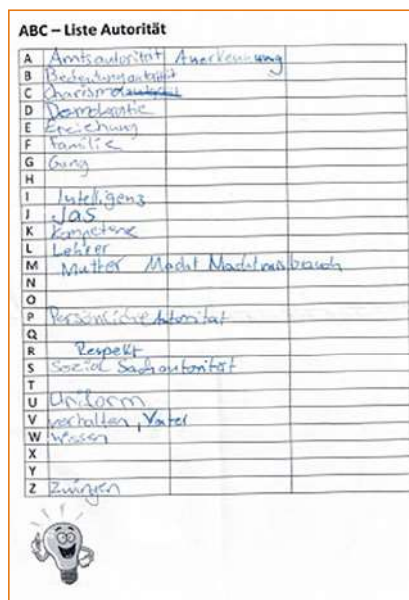 ABC – Liste Autorität
A Amtsautorität Anerkennung
B Bedeutungsautorität
C Charisma
D Demokratie
E Erziehung
F Familie
G Gang
H
I Intelligenz
J Jas
K Kompetenz
L Lehrer
M Mutter Macht Machtmissbrauch
N
O
P Persönliche Autorität
Q
R Respekt
S Sozial Sachautorität
T
U Uniform
V verhalten, Vater
W Wissen
X
Y
Z Zwingen